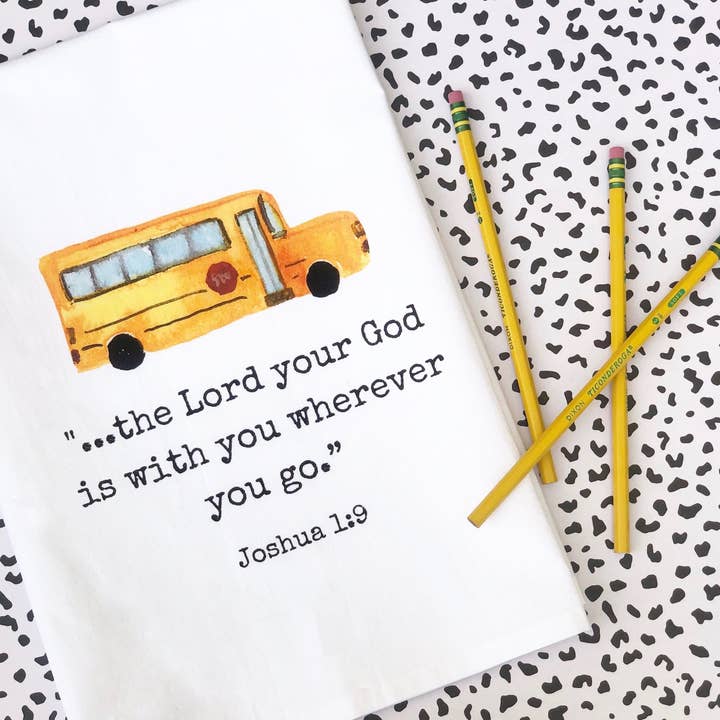 "...the Lord your God
is with you wherever
you go.”
Joshua 1:9
DIXON TICONDEROGA®
DIXON TICONDEROGA®